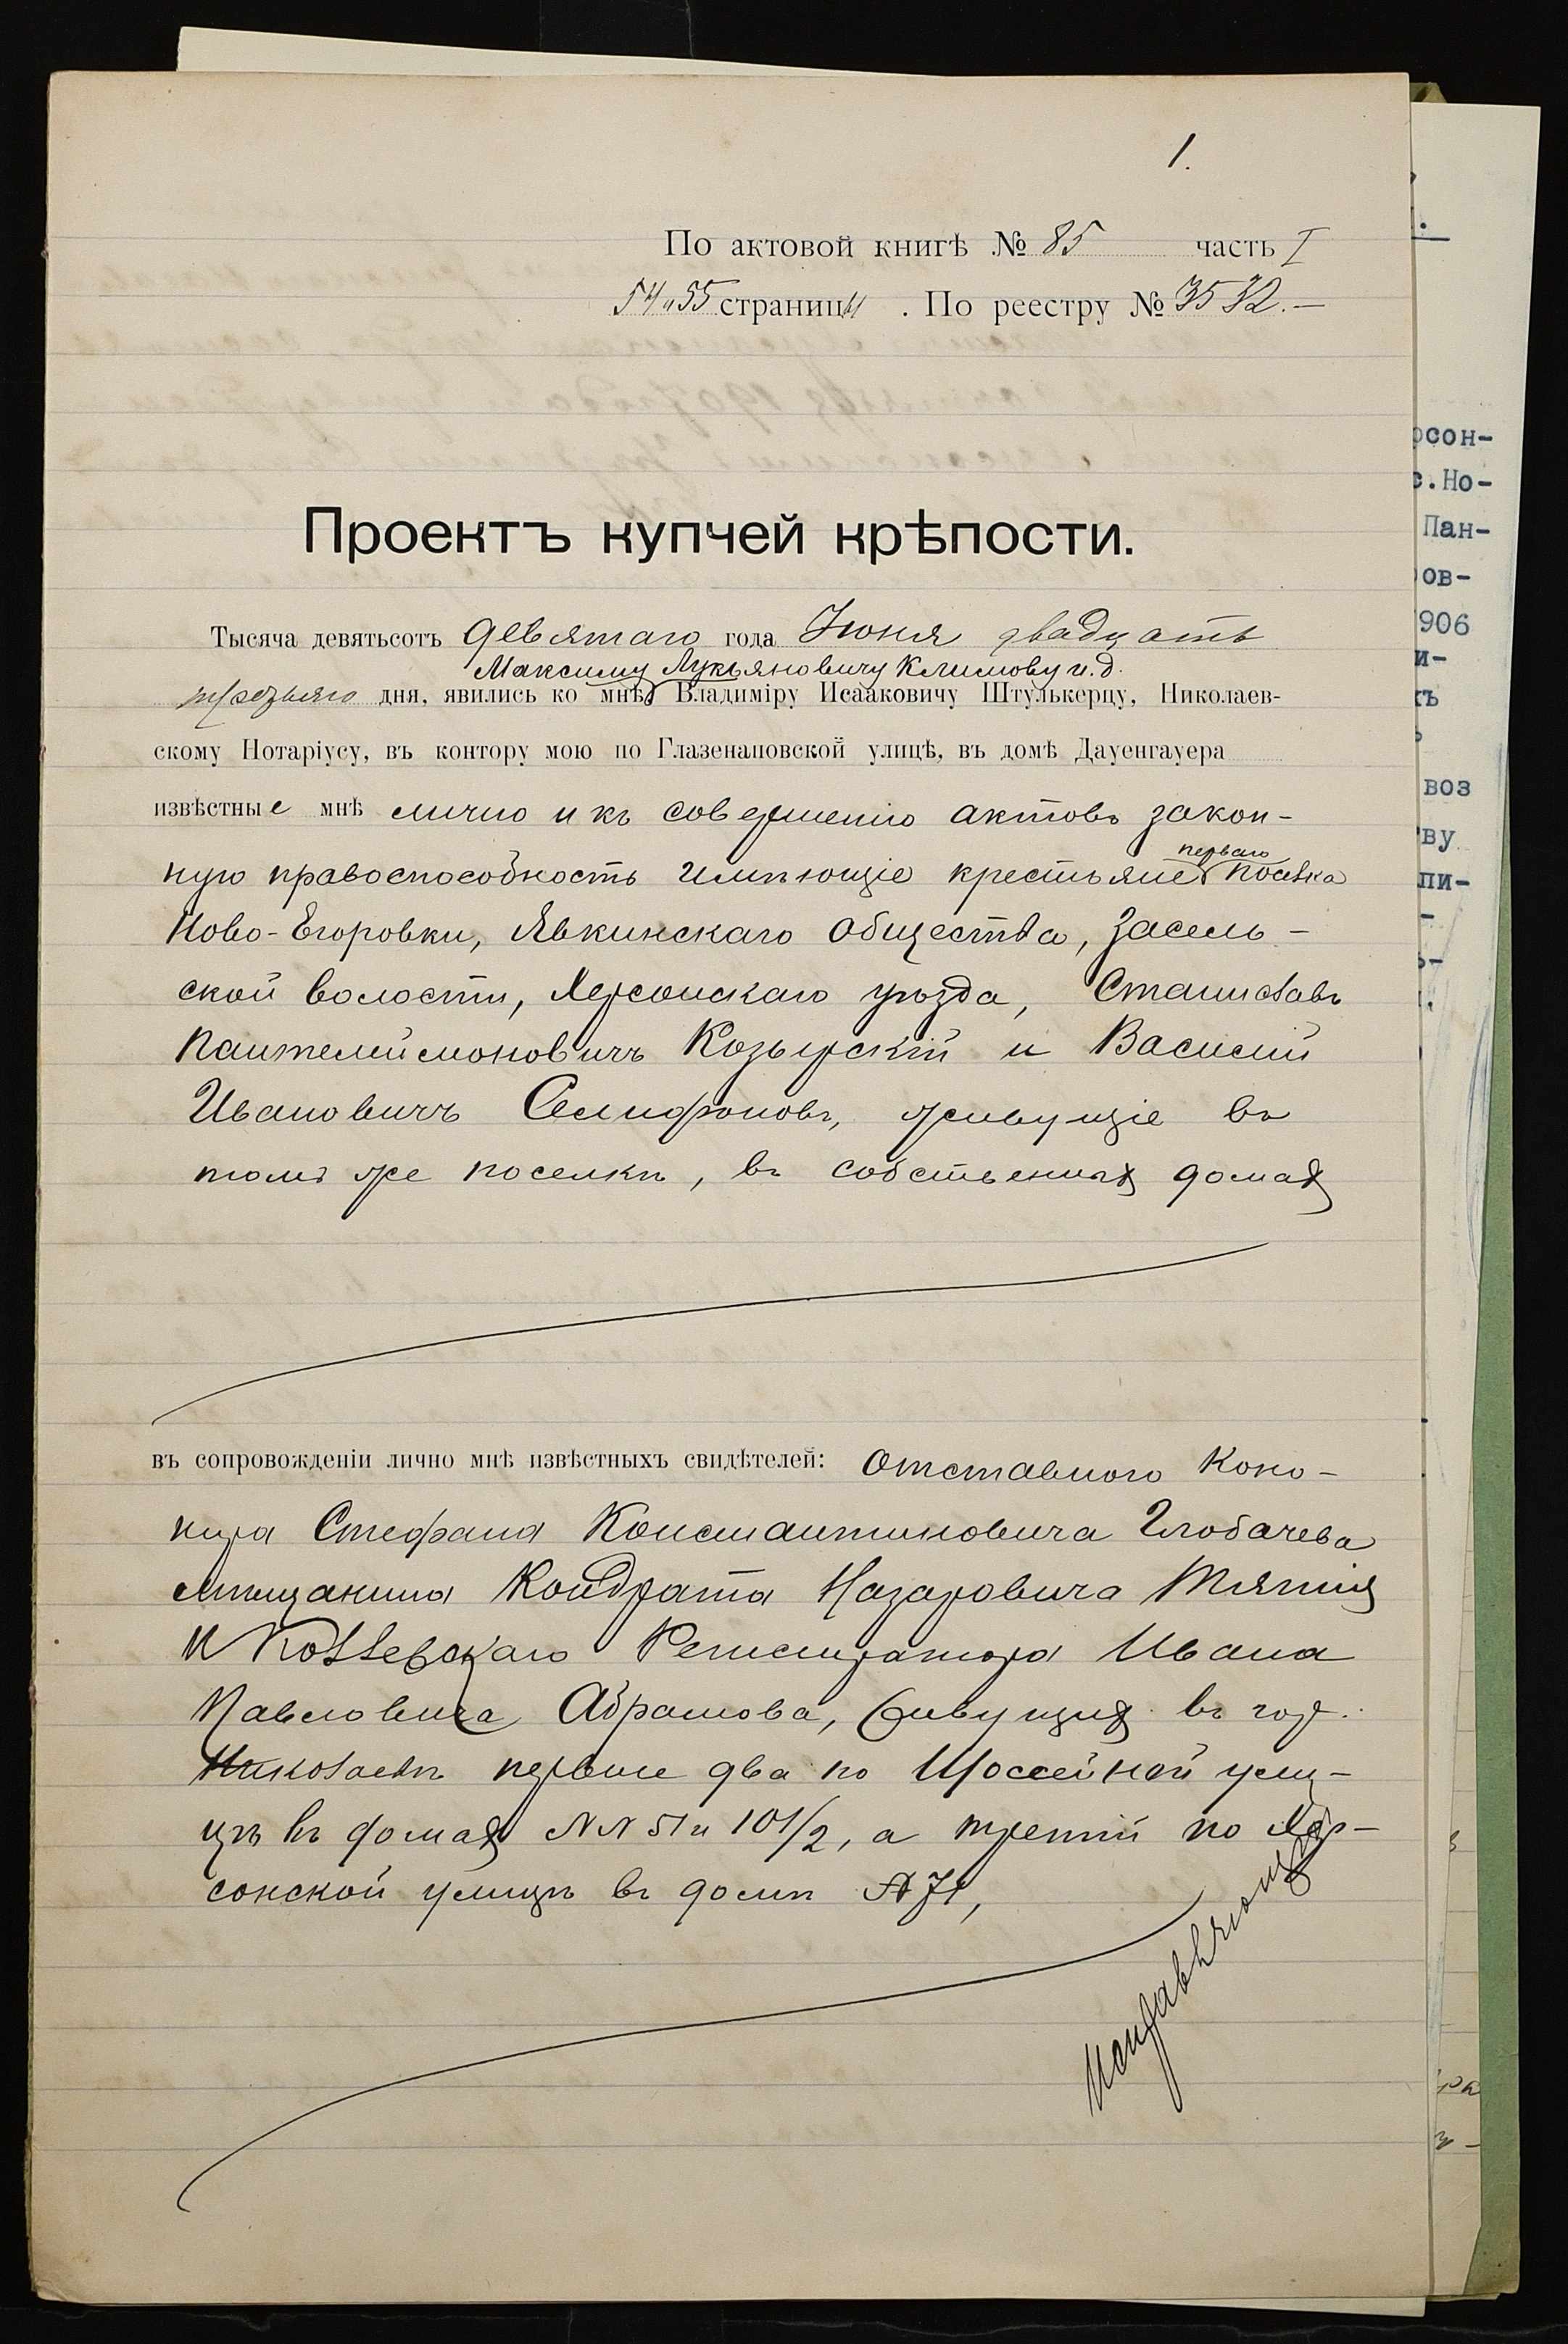 1.
По актовой книгѣ № 85 часть I
54 и 55 страницы . По реестру № 3532.—
Проектъ купчей крѣпости.
Тысяча девятьсотъ девятаго года Іюня двадцать
Максиму Лукьяновичу Климову и.д.
третьяго дня, явились ко мнѣ, Владиміру Исааковичу Штулькерцу, Николаев-
скому Нотаріусу, въ контору мою по Глазенаповской улицѣ, въ домѣ Дауенгауера
извѣстные мнѣ лично и къ совершенію актовъ закон-
перваго
ную правоспособность имѣющіе крестьяне поселка
Ново-Егоровки, Явкинскаго общества, Засель-
ской волости, Херсонскаго уѣзда, Станиславъ
Пантелеймоновичъ Козырскій и Василій
Ивановичъ Селифоновъ, живущіе въ
томъ же поселкѣ, въ собственныхъ домахъ
въ сопровожденіи лично мнѣ извѣстныхъ свидѣтелей: отставного коно-
пира Стефана Константиновича Глобачева
мѣщанина Кондрата Назаровича
и Коллежскаго Регистратора Ивана
Павловича Абрамова, живущихъ въ гор.
Николаевѣ первые два по Шоссейной ули-
цѣ въ домахъ №№ 51 и 101/2, а третій по Хер-
сонской улицѣ въ домѣ № 71,